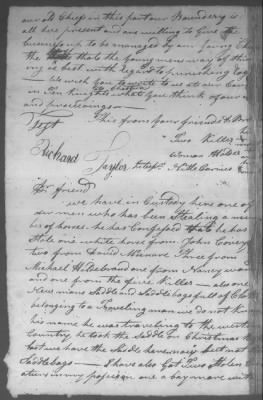 our old Chiefs in this part our Boundery is
all here present and are willing to Give the
business up to be managed by our young
the that the young men way of thin
ing is best with Regard to furnishing
we wish you to write to us at our Camp
in Ten Kings what you think of our
and practicing
Test This from your friends & Br
Two Killer
Richard Taylor Woman Holder
friend
we have in Custody here one of
our men who has been Stealing a num
ber of horses. he has Confessed that he has
Stole one white horse from John Covey
two from David Manave Three from
Michael Hildebrand one from Nancy Ward
and one from the fire Killer – also one
new Saddle and Saddle bags full of Clo
belonging to a Traveling man we do not know
his name he was traveling to the western
Country, he took the Saddle on Christmas
last we have the Saddle here now but not
Saddle bags – I have also Got Two Stolen
in my possession one a bay mare with